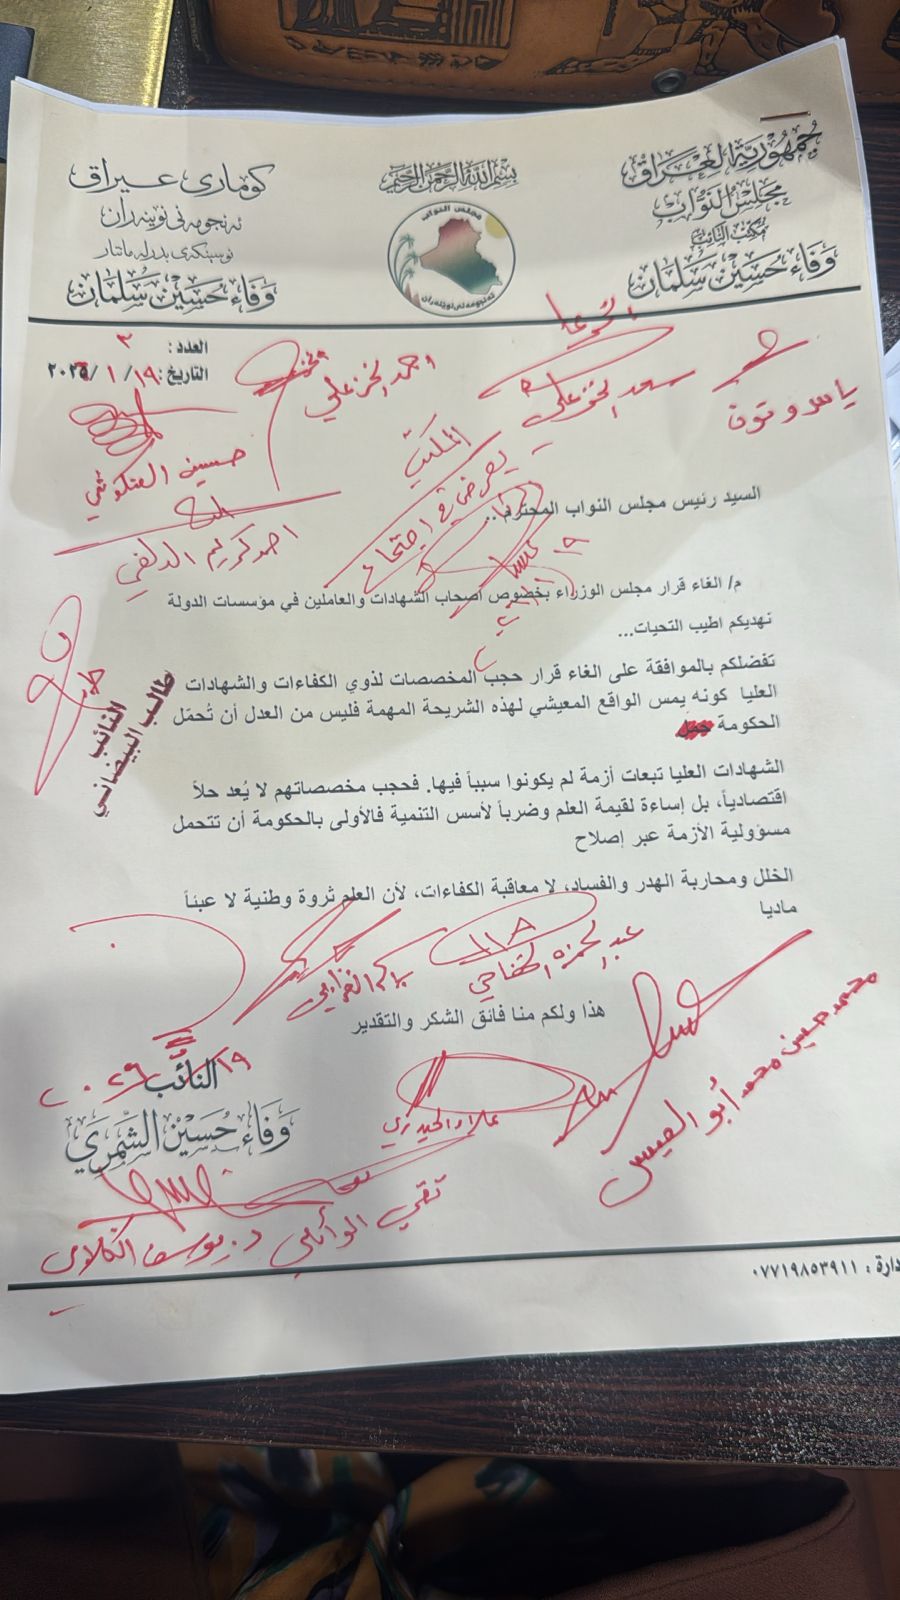 جمهورية العراق
مجلس النواب
مكتب النائب
وفاء حسين سلمان
بسم الله الرحمن الرحيم
مجلس النواب
ئەنجومەنی نوینەران
كوماری عیراق
ئەنجومەنی نوینەران
نوسینگەی پەرلەمانتار
وفاء حسين سلمان
العدد: ٣
التاريخ: ١٩/ ١ /٢٠٢٦
احمد الخزعلي
سعد الخزعلي
حسين العنكوشي
احمد كريم الدلفي
المكتب
يعرض في اجتماع
السيد رئيس مجلس النواب المحترم..
م/ الغاء قرار مجلس الوزراء بخصوص اصحاب الشهادات والعاملين في مؤسسات الدولة
نهديكم اطيب التحيات...
تفضلكم بالموافقة على الغاء قرار حجب المخصصات لذوي الكفاءات والشهادات
العليا كونه يمس الواقع المعيشي لهذه الشريحة المهمة فليس من العدل أن تُحمّل
الحكومة
النائب
طالب البيضاني
الشهادات العليا تبعات أزمة لم يكونوا سبباً فيها. فحجب مخصصاتهم لا يُعد حلاً
اقتصادياً، بل إساءة لقيمة العلم وضرباً لأسس التنمية فالأولى بالحكومة أن تتحمل
مسؤولية الأزمة عبر إصلاح
الخلل ومحاربة الهدر والفساد، لا معاقبة الكفاءات، لأن العلم ثروة وطنية لا عبئاً
ماديا
عبد الحمزة الخفاجي
هذا ولكم منا فائق الشكر والتقدير
محمد حسين محمد أبو العيس
النائب
وفاء حسين الشمري
علاء الحيدري
تقي الوائلي
د. يوسف الكلابي
دارة : ٠٧٧١٩٨٥٣٩١١